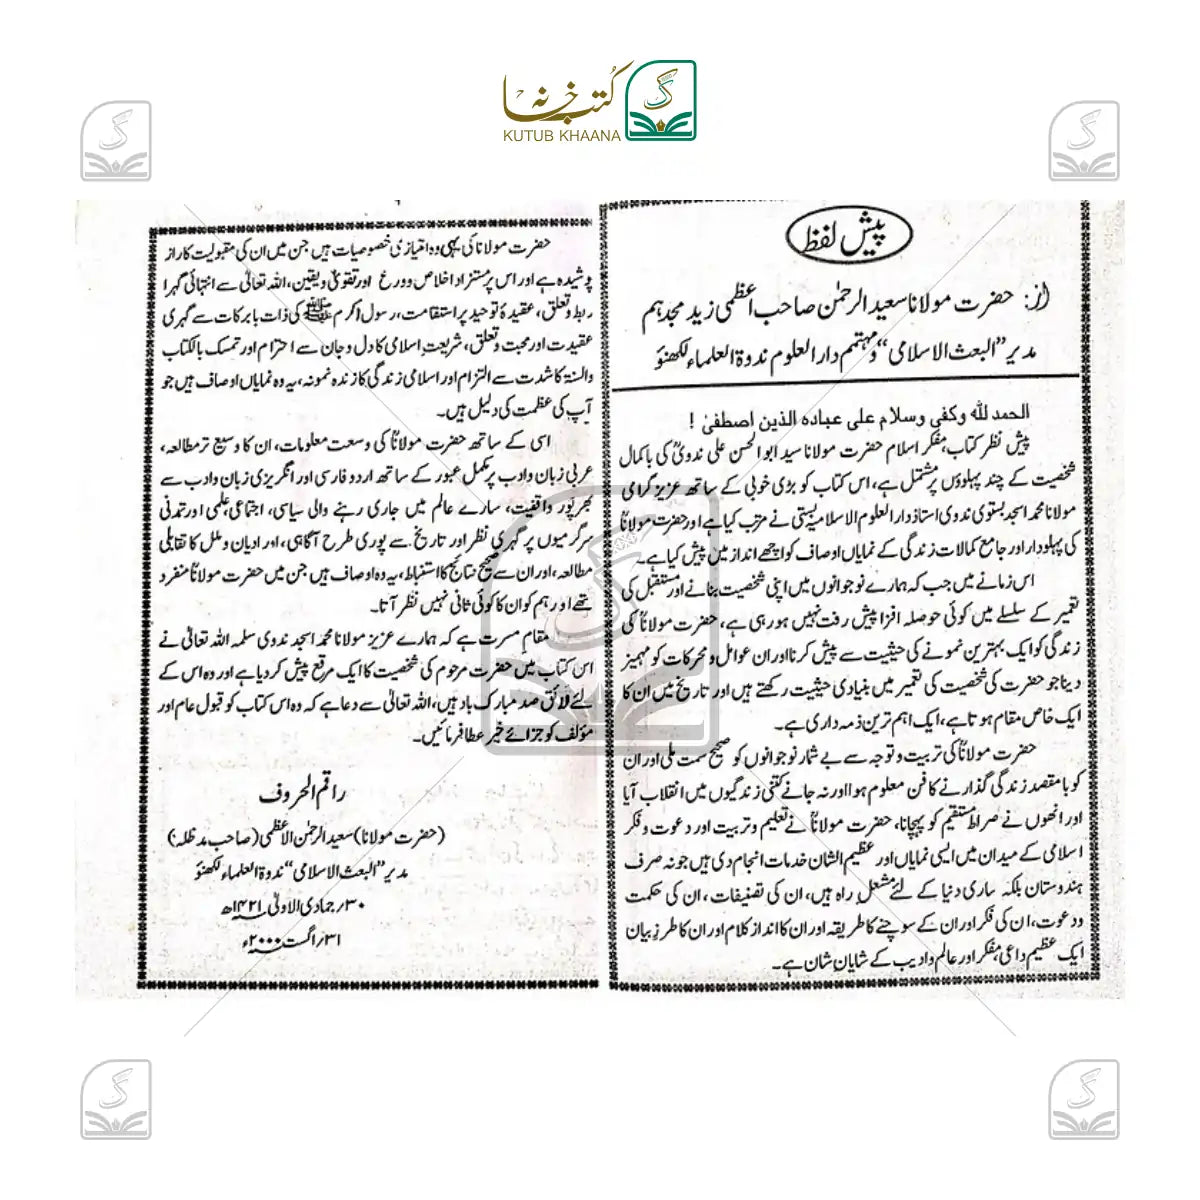 کتب خانہ
KUTUB KHAANA
پیش لفظ
از: حضرت مولانا سعید الرحمٰن صاحب اعظمی زید مجدہم
مدیر "البعث الاسلامی" و مہتمم دارالعلوم ندوۃ العلماء لکھنؤ
الحمد لله وكفى وسلام على عباده الذين اصطفىٰ !
پیش نظر کتاب، مفکر اسلام حضرت مولانا سید ابوالحسن علی ندویؒ کی باکمال
شخصیت کے چند پہلوؤں پر مشتمل ہے، اس کتاب کو بڑی خوبی کے ساتھ عزیز گرامی
مولانا محمد اسجد بستوی ندوی استاذ دارالعلوم الاسلامیہ بستی نے مرتب کیا ہے اور حضرت مولاناؒ
کی پہلودار اور جامع کمالات زندگی کے نمایاں اوصاف کو اچھے انداز میں پیش کیا ہے۔
اس زمانے میں جب کہ ہمارے نوجوانوں میں اپنی شخصیت بنانے اور مستقبل کی
تعمیر کے سلسلے میں کوئی حوصلہ افزا پیش رفت نہیں ہو رہی ہے، حضرت مولاناؒ کی
زندگی کو ایک بہترین نمونے کی حیثیت سے پیش کرنا اور ان عوامل و محرکات کو مہمیز
دینا جو حضرت کی شخصیت کی تعمیر میں بنیادی حیثیت رکھتے ہیں اور تاریخ میں ان کا
ایک خاص مقام ہوتا ہے، ایک اہم ترین ذمہ داری ہے۔
حضرت مولاناؒ کی تربیت و توجہ سے بے شمار نوجوانوں کو صحیح سمت ملی اور ان
کو بامقصد زندگی گذارنے کا فن معلوم ہوا اور نہ جانے کتنی زندگیوں میں انقلاب آیا
اور انھوں نے صراط مستقیم کو پہچانا، حضرت مولاناؒ نے تعلیم و تربیت اور دعوت و فکر
اسلامی کے میدان میں ایسی نمایاں اور عظیم الشان خدمات انجام دی ہیں جو نہ صرف
ہندوستان بلکہ ساری دنیا کے لئے مشعل راہ ہیں، ان کی تصنیفات، ان کی حکمت
و دعوت، ان کی فکر اور ان کے سوچنے کا طریقہ اور ان کا انداز کلام اور ان کا طرز بیان
ایک عظیم داعی، مفکر اور عالم و ادیب کے شایان شان ہے۔
حضرت مولانا کی یہی وہ امتیازی خصوصیات ہیں جن میں ان کی مقبولیت کا راز
پوشیدہ ہے اور اس پر مستزاد اخلاص و ورع اور تقویٰ و یقین، اللہ تعالیٰ سے انتہائی گہرا
ربط و تعلق، عقیدۂ توحید پر استقامت، رسول اکرم ﷺ کی ذات بابرکات سے گہری
عقیدت اور محبت و تعلق، شریعتِ اسلامی کا دل و جان سے احترام اور تمسک بالکتاب
والسنۃ کا شدت سے التزام اور اسلامی زندگی کا زندہ نمونہ، یہ وہ نمایاں اوصاف ہیں جو
آپ کی عظمت کی دلیل ہیں۔
اسی کے ساتھ حضرت مولاناؒ کی وسعت معلومات، ان کا وسیع تر مطالعہ،
عربی زبان و ادب پر مکمل عبور کے ساتھ اردو فارسی اور انگریزی زبان و ادب سے
بھرپور واقفیت، سارے عالم میں جاری رہنے والی سیاسی، اجتماعی، علمی اور تمدنی
سرگرمیوں پر گہری نظر اور تاریخ سے پوری طرح آگاہی، اور ادیان و ملل کا تقابلی
مطالعہ، اور ان سے صحیح نتائج کا استنباط، یہ وہ اوصاف ہیں جن میں حضرت مولاناؒ منفرد
تھے اور ہم کو ان کا کوئی ثانی نہیں نظر آتا۔
مقام مسرت ہے کہ ہمارے عزیز مولانا محمد اسجد ندوی سلمہ اللہ تعالیٰ نے
اس کتاب میں حضرت مرحوم کی شخصیت کا ایک مرقع پیش کر دیا ہے اور وہ اس کے
لئے لائق صد مبارک باد ہیں، اللہ تعالیٰ سے دعا ہے کہ وہ اس کتاب کو قبول عام اور
مؤلف کو جزائے خیر عطا فرمائیں۔
راقم الحروف
(حضرت مولانا) سعید الرحمٰن الاعظمی (صاحب مدظلہ)
مدیر "البعث الاسلامی" ندوۃ العلماء لکھنؤ
۳۰؍ جمادی الاولیٰ ۱۴۲۱ھ
۳۱؍ اگست ۲۰۰۰ء